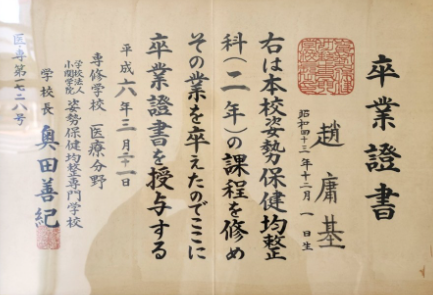 卒業證書
趙庸基
昭和四十三年十二月一日生
右は本校姿勢保健均整
科(二年)の課程を修め
その業を卒えたのでここに
卒業證書を授与する
平成六年三月二十一日
専修学校 医療分野
学校法人
小関学院
姿勢保健均整専門学校
学校長 奥田善紀
医専第一七二八号